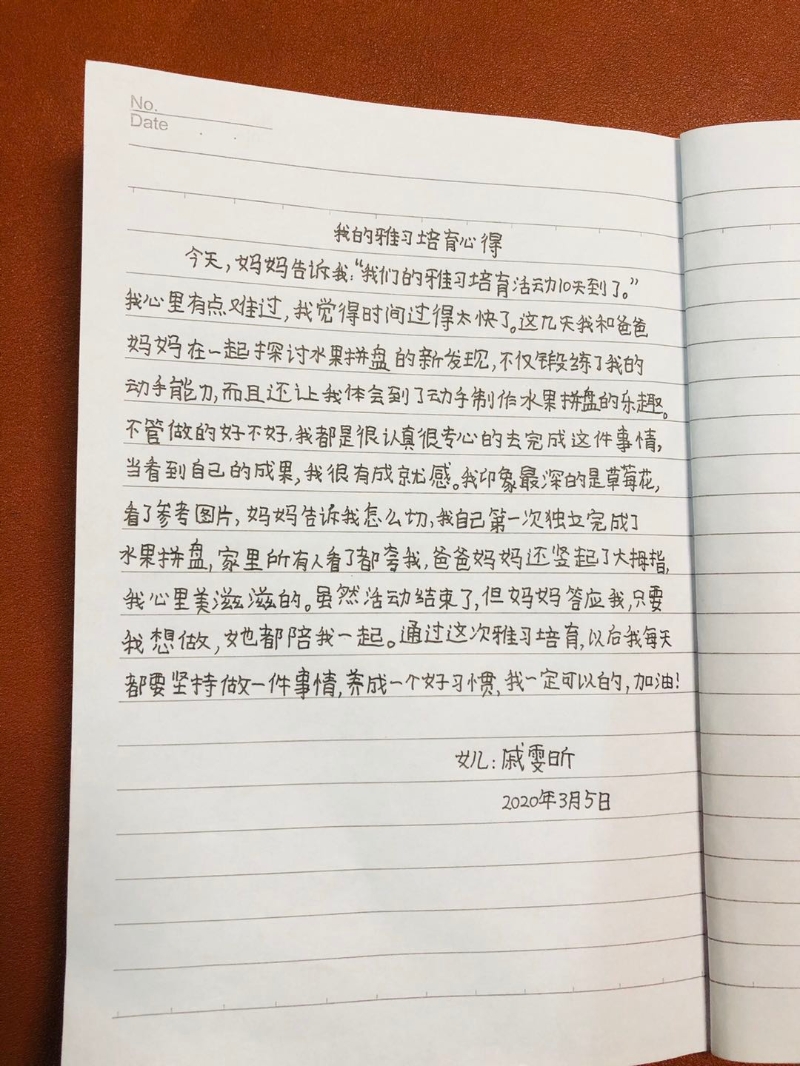 No.
Date
我的雅习培育心得
今天，妈妈告诉我：“我们的雅习培育活动10天到了。”
我心里有点难过，我觉得时间过得太快了。这几天我和爸爸
妈妈在一起探讨水果拼盘的新发现，不仅锻练了我的
动手能力，而且还让我体会到了动手制作水果拼盘的乐趣。
不管做的好不好，我都是很认真很专心的去完成这件事情，
当看到自己的成果，我很有成就感。我印象最深的是草莓花，
看了参考图片，妈妈告诉我怎么切，我自己第一次独立完成了
水果拼盘，家里所有人看了都夸我，爸爸妈妈还竖起了大拇指，
我心里美滋滋的。虽然活动结束了，但妈妈答应我，只要
我想做，她都陪我一起。通过这次雅习培育，以后我每天
都要坚持做一件事情，养成一个好习惯，我一定可以的，加油！
女儿：戚雯昕
2020年3月5日